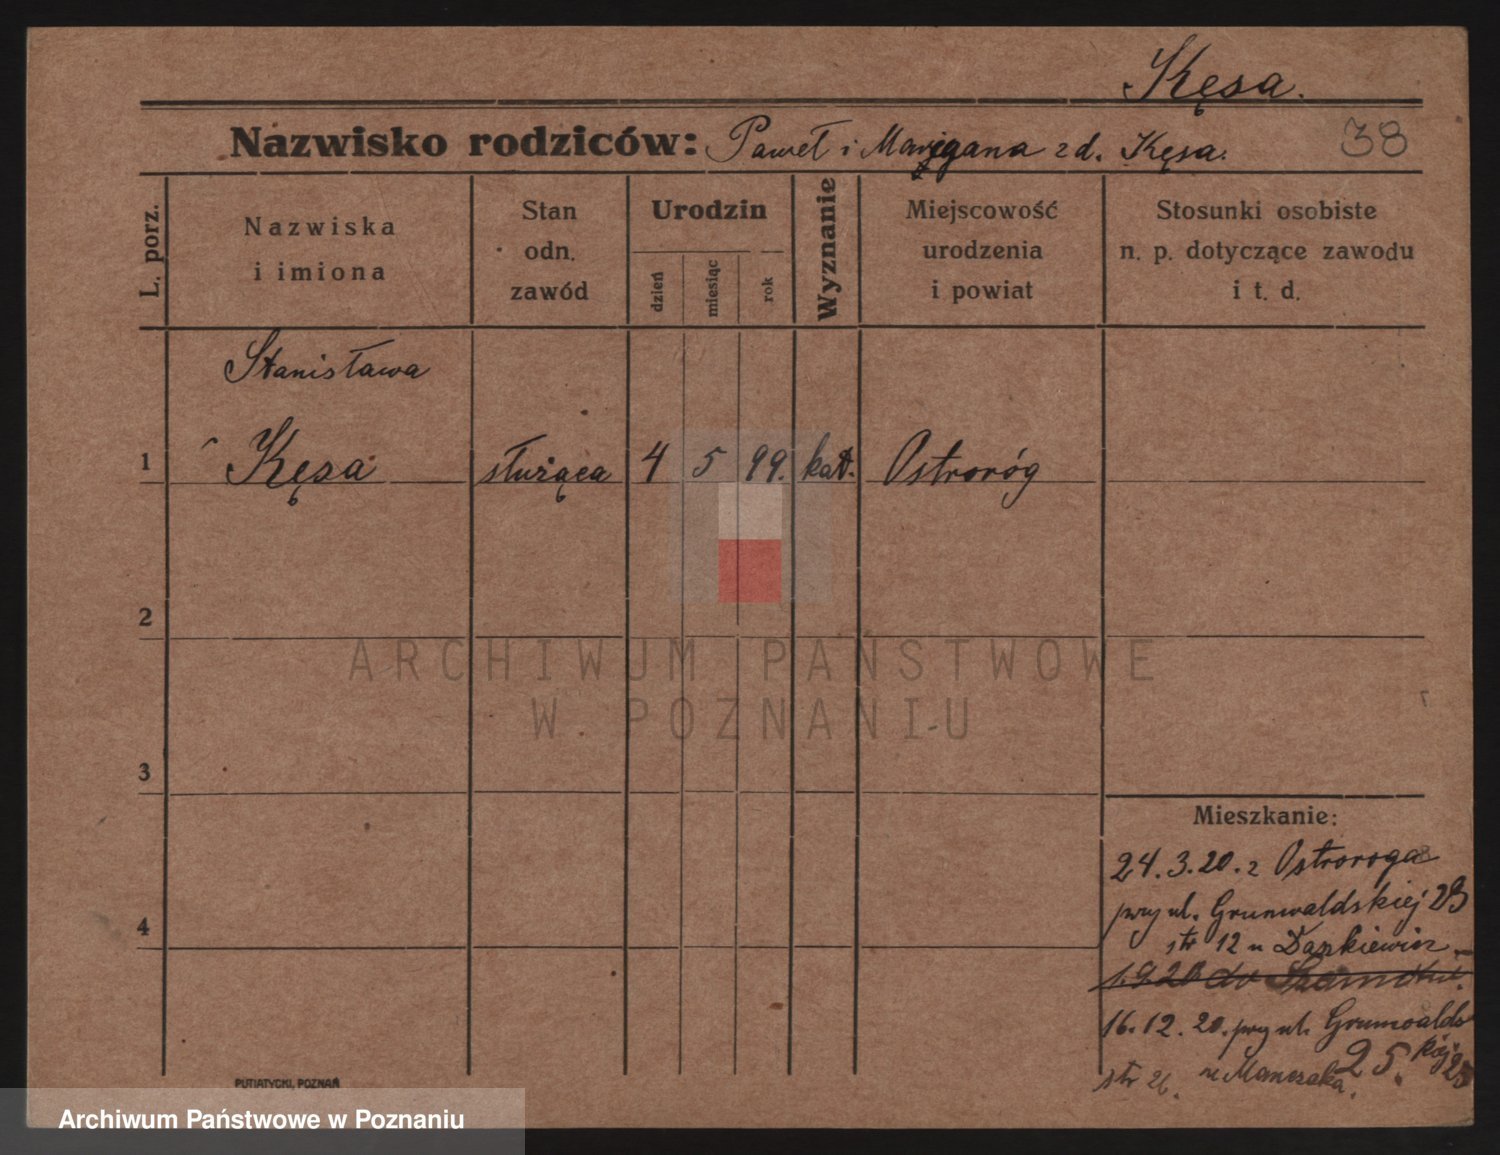 Kęsa.
Nazwisko rodziców: Paweł i Maryanna z d. Kęsa.
38
L. porz.
Nazwiska
i imiona
Stan
odn.
zawód
Urodzin
dzień
miesiąc
rok
Wyznanie
Miejscowość
urodzenia
i powiat
Stosunki osobiste
n. p. dotyczące zawodu
i t. d.
Stanisława
1 Kęsa służąca 4 5 99. kat. Ostroróg
2
ARCHIWUM PAŃSTWOWE
W POZNANIU
3
4
Mieszkanie:
24.3.20. z Ostroroga
przy ul. Grunwaldskiej 23
str 12 u Dankiewicz
1.9.20 do
16.12.20. przy ul. Grunwalds
kiej 25
str 26. u Manczaka. 25.
PUTIATYCKI, POZNAŃ
Archiwum Państwowe w Poznaniu